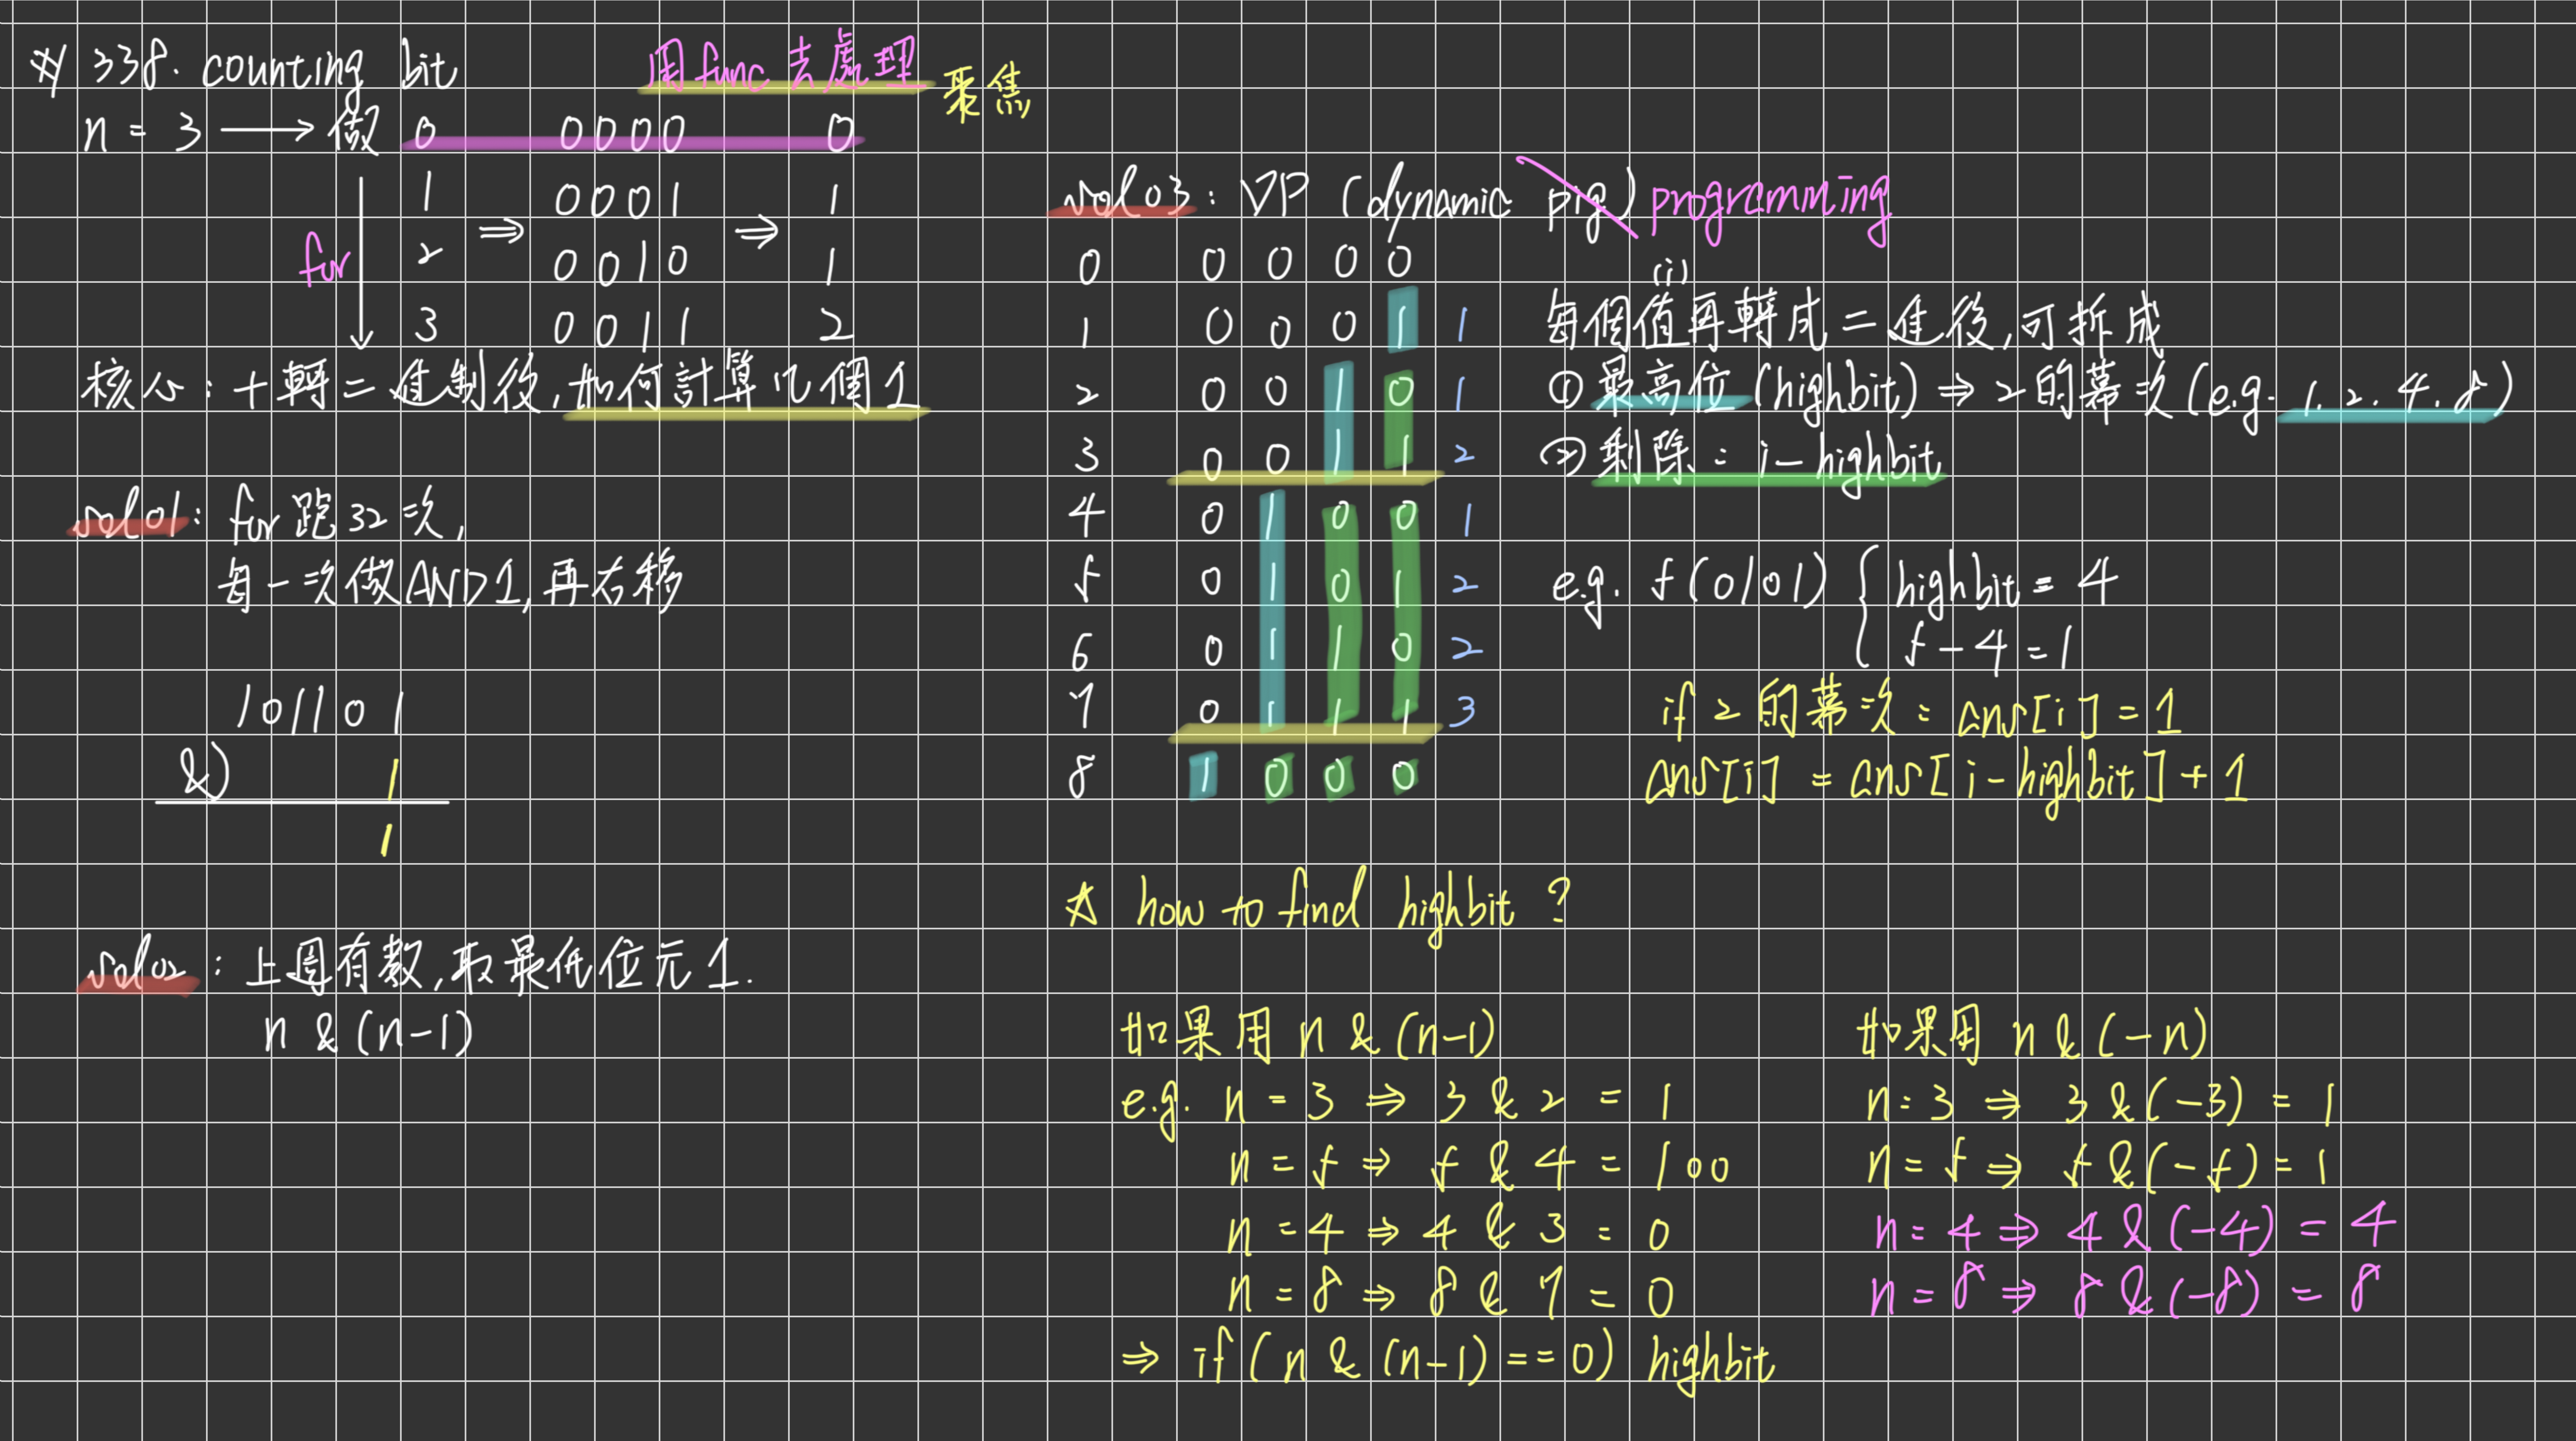 ※ 338. counting bit 用func去處理 聚焦
n = 3 → 做 0 0000 0
1 0001 1
for 2 ⇒ 0010 ⇒ 1
3 0011 2
核心：十轉二進制後，如何計算几個1
sol01: for跑32次，
每一次做AND1，再右移
101101
&) 1
1
sol02: 上週有教，取最低位元1.
n & (n-1)
sol03: DP (dynamic pig) programming
0 0 0 0 0
1 0 0 0 1 1
2 0 0 1 0 1
3 0 0 1 1 2
4 0 1 0 0 1
5 0 1 0 1 2
6 0 1 1 0 2
7 0 1 1 1 3
8 1 0 0 0
(i)
每個值再轉成二進後，可拆成
① 最高位(highbit) ⇒ 2的幕次(e.g. 1. 2. 4. 8)
② 剩除：i - highbit
e.g. 5(0101) { highbit = 4
5 - 4 = 1
if 2的幕次：ans[i] = 1
ans[i] = ans[i-highbit] + 1
☆ how to find highbit ?
如果用 n & (n-1)
e.g. n = 3 ⇒ 3 & 2 = 1
n = 5 ⇒ 5 & 4 = 100
n = 4 ⇒ 4 & 3 = 0
n = 8 ⇒ 8 & 7 = 0
⇒ if (n & (n-1) == 0) highbit
如果用 n & (-n)
n = 3 ⇒ 3 & (-3) = 1
n = 5 ⇒ 5 & (-5) = 1
n = 4 ⇒ 4 & (-4) = 4
n = 8 ⇒ 8 & (-8) = 8